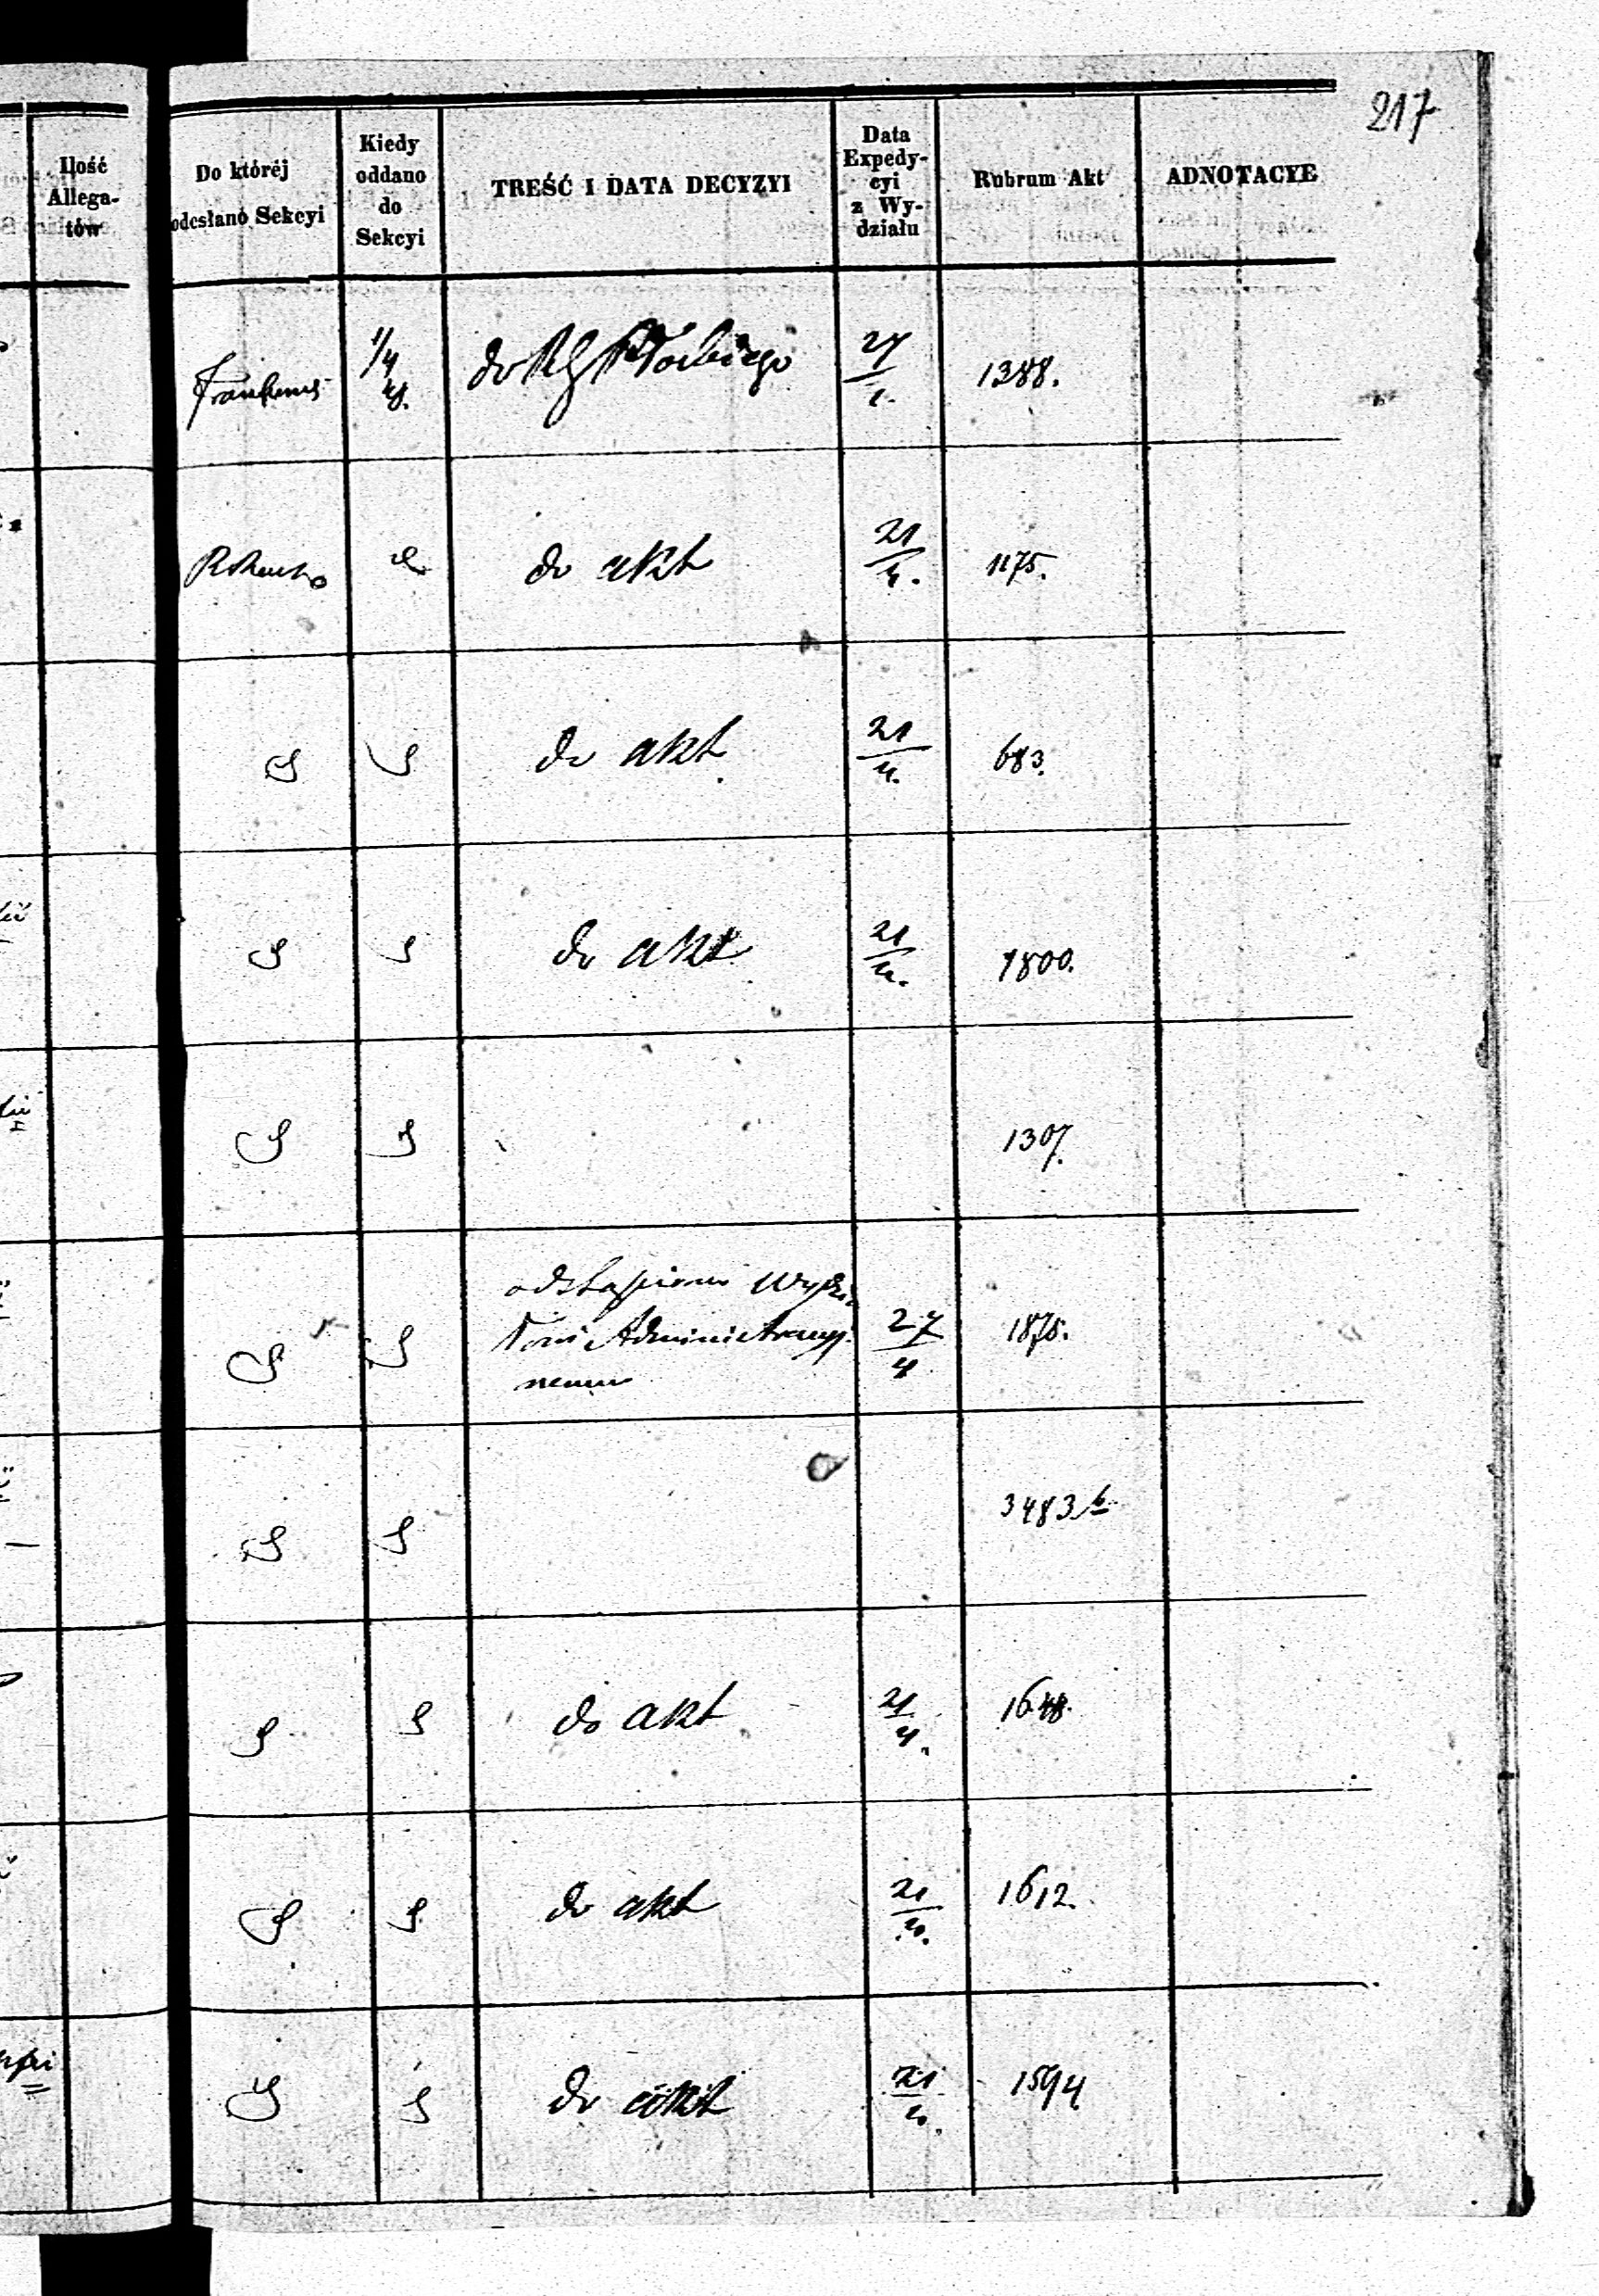 217
Ilość
Allega-
tów
Do któréj
odesłano Sekcyi
Kiedy
oddano
do
Sekcyi
TREŚĆ I DATA DECYZYI
Data
Expedy-
cyi
z Wy-
działu
Rubrum Akt
ADNOTACYE
1/4
do RG Płockiego
27
1388.
do akt
21
4.
1175.
do akt
21
4.
683.
do akt
21
4.
1800.
1307.
odstąpiono Wydzia
łowi Administracyj
nemu
27
4
1875.
3483 b
do akt
21
4.
1648.
do akt
21
4.
1612.
do akt
21
4.
1594